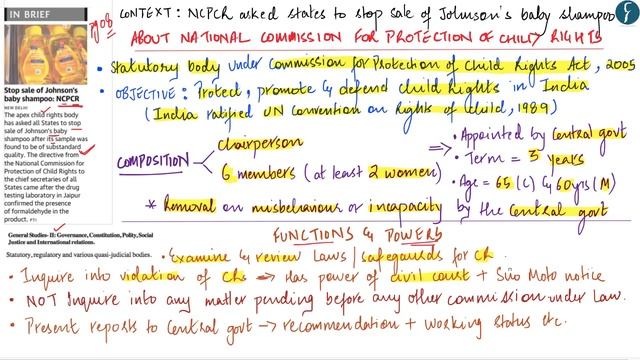 IN BRIEF
Stop sale of Johnson's
baby shampoo: NCPCR
NEW DELHI
The apex child rights body
has asked all States to stop
sale of Johnson's baby
shampoo after its sample was
found to be of substandard
quality. The directive from
the National Commission for
Protection of Child Rights to
the chief secretaries of all
States came after the drug
testing laboratory in Jaipur
confirmed the presence
of formaldehyde in the
product. PTI
General Studies- II: Governance, Constitution, Polity, Social
Justice and International relations.
Statutory, regulatory and various quasi-judicial bodies.
CONTEXT: NCPCR asked states to stop sale of Johnson's baby shampoo
ABOUT NATIONAL COMMISSION FOR PROTECTION OF CHILD RIGHTS
• Statutory body under Commission for Protection of Child Rights Act, 2005
• OBJECTIVE: Protect, promote & defend child Rights in India
(India ratified UN Convention on Rights of Child, 1989)
COMPOSITION
chairperson
6 members (at least 2 women)
⇒ • Appointed by Central govt
• Term = 3 years
• Age = 65 (C) & 60yrs (M)
* Removal on misbehaviour or incapacity by the Central govt
FUNCTIONS & POWERS
• Examine & review Laws / safeguards for CR
• Inquire into violation of CRs → Has power of civil court + Suo Moto notice
• NOT Inquire into any matter pending before any other commission under Law.
• Present reports to Central govt → recommendation + working status etc.